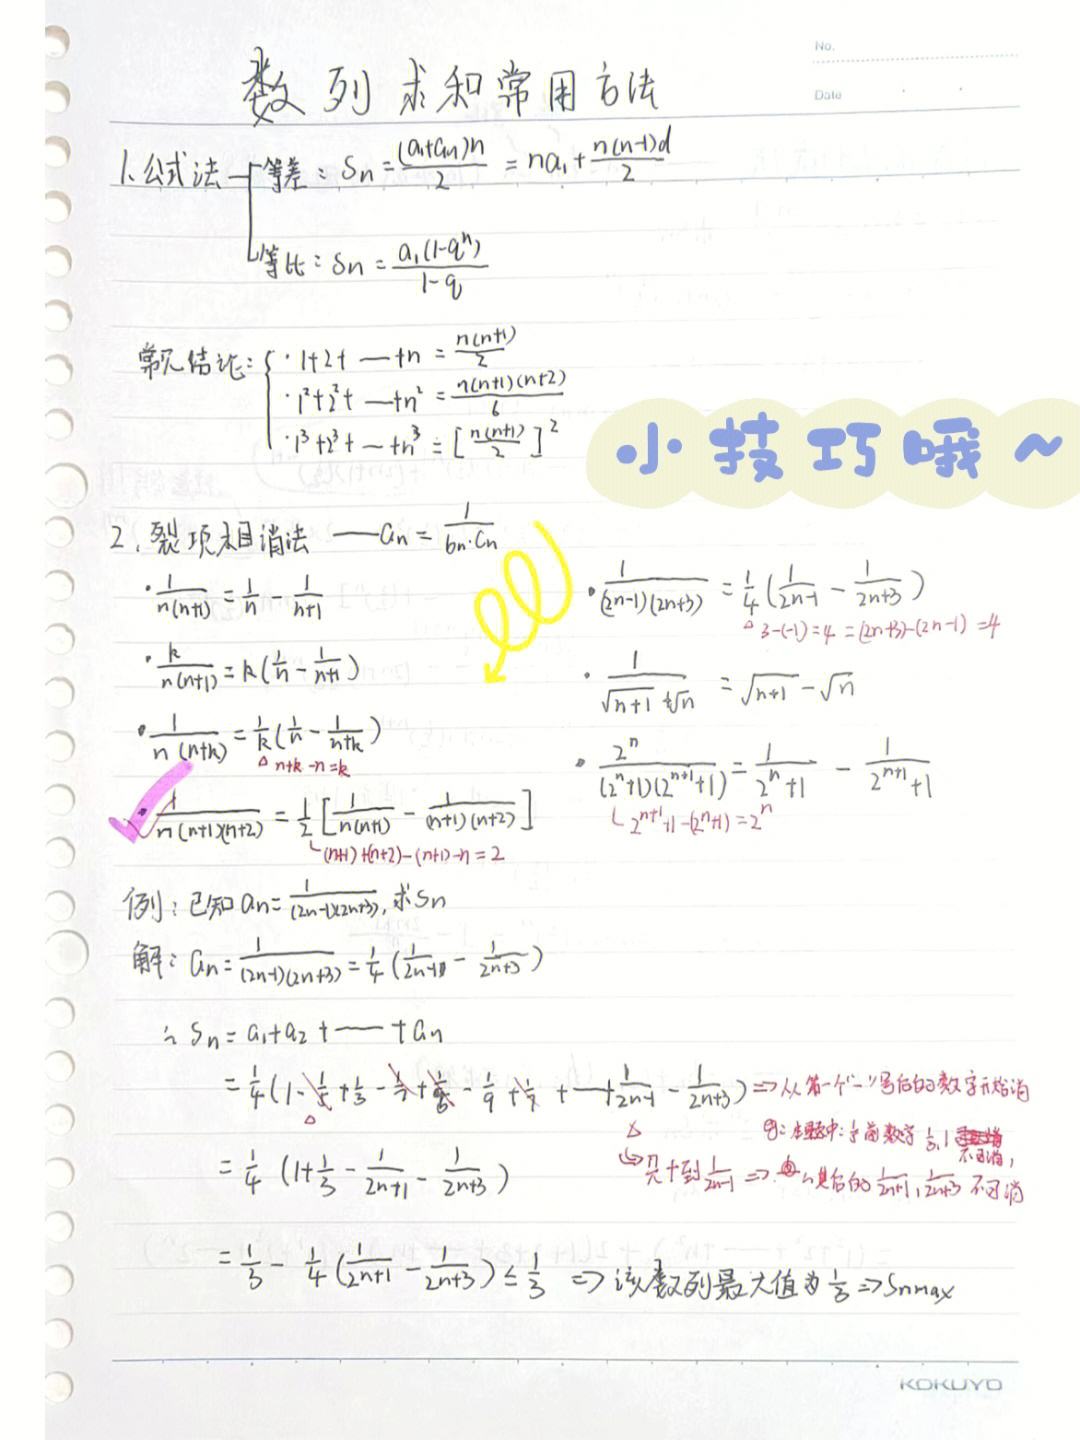 No.
Date
数列求和常用方法
1.公式法 等差: Sn = (a1+an)n/2 = na1 + n(n-1)d/2
等比: Sn = a1(1-q^n)/1-q
常见结论: · 1+2+ — +n = n(n+1)/2
· 1²+2²+ — +n² = n(n+1)(n+2)/6
· 1³+2³+ — +n³ = [n(n+1)/2]²
小技巧哦~
2.裂项相消法 — an = 1/bn·Cn
· 1/n(n+1) = 1/n - 1/n+1
· k/n(n+1) = k(1/n - 1/n+1)
· 1/n(n+k) = 1/k(1/n - 1/n+k)
△ n+k-n=k
· 1/n(n+1)(n+2) = 1/2[1/n(n+1) - 1/(n+1)(n+2)]
(n+1)+(n+2)-(n+1)-n=2
· 1/(2n-1)(2n+3) = 1/4(1/2n-1 - 1/2n+3)
△ 3-(-1)=4=(2n+3)-(2n-1)=4
· 1/√n+1+√n = √n+1 - √n
· 2^n/(2^n+1)(2^(n+1)+1) = 1/2^n+1 - 1/2^(n+1)+1
2^(n+1)+1-(2^n+1)=2^n
例:已知an=1/(2n-1)(2n+3),求Sn
解: an=1/(2n-1)(2n+3)=1/4(1/2n-1 - 1/2n+3)
∴ Sn=a1+a2+ — +an
=1/4(1-1/5+1/3-1/7+1/5-1/9+1/7+ — +1/2n-1 - 1/2n+3) ⇒从第一个"-"号后的数字开始消
△ △ 前数字1/3,1不可消,
=1/4(1+1/3-1/2n+1-1/2n+3)
到1/2n-1 ⇒ 其后的1/2n+1,1/2n+3不可消
=1/3-1/4(1/2n+1-1/2n+3)≤1/3 ⇒该数列最大值为1/3⇒Snmax
KOKUYO